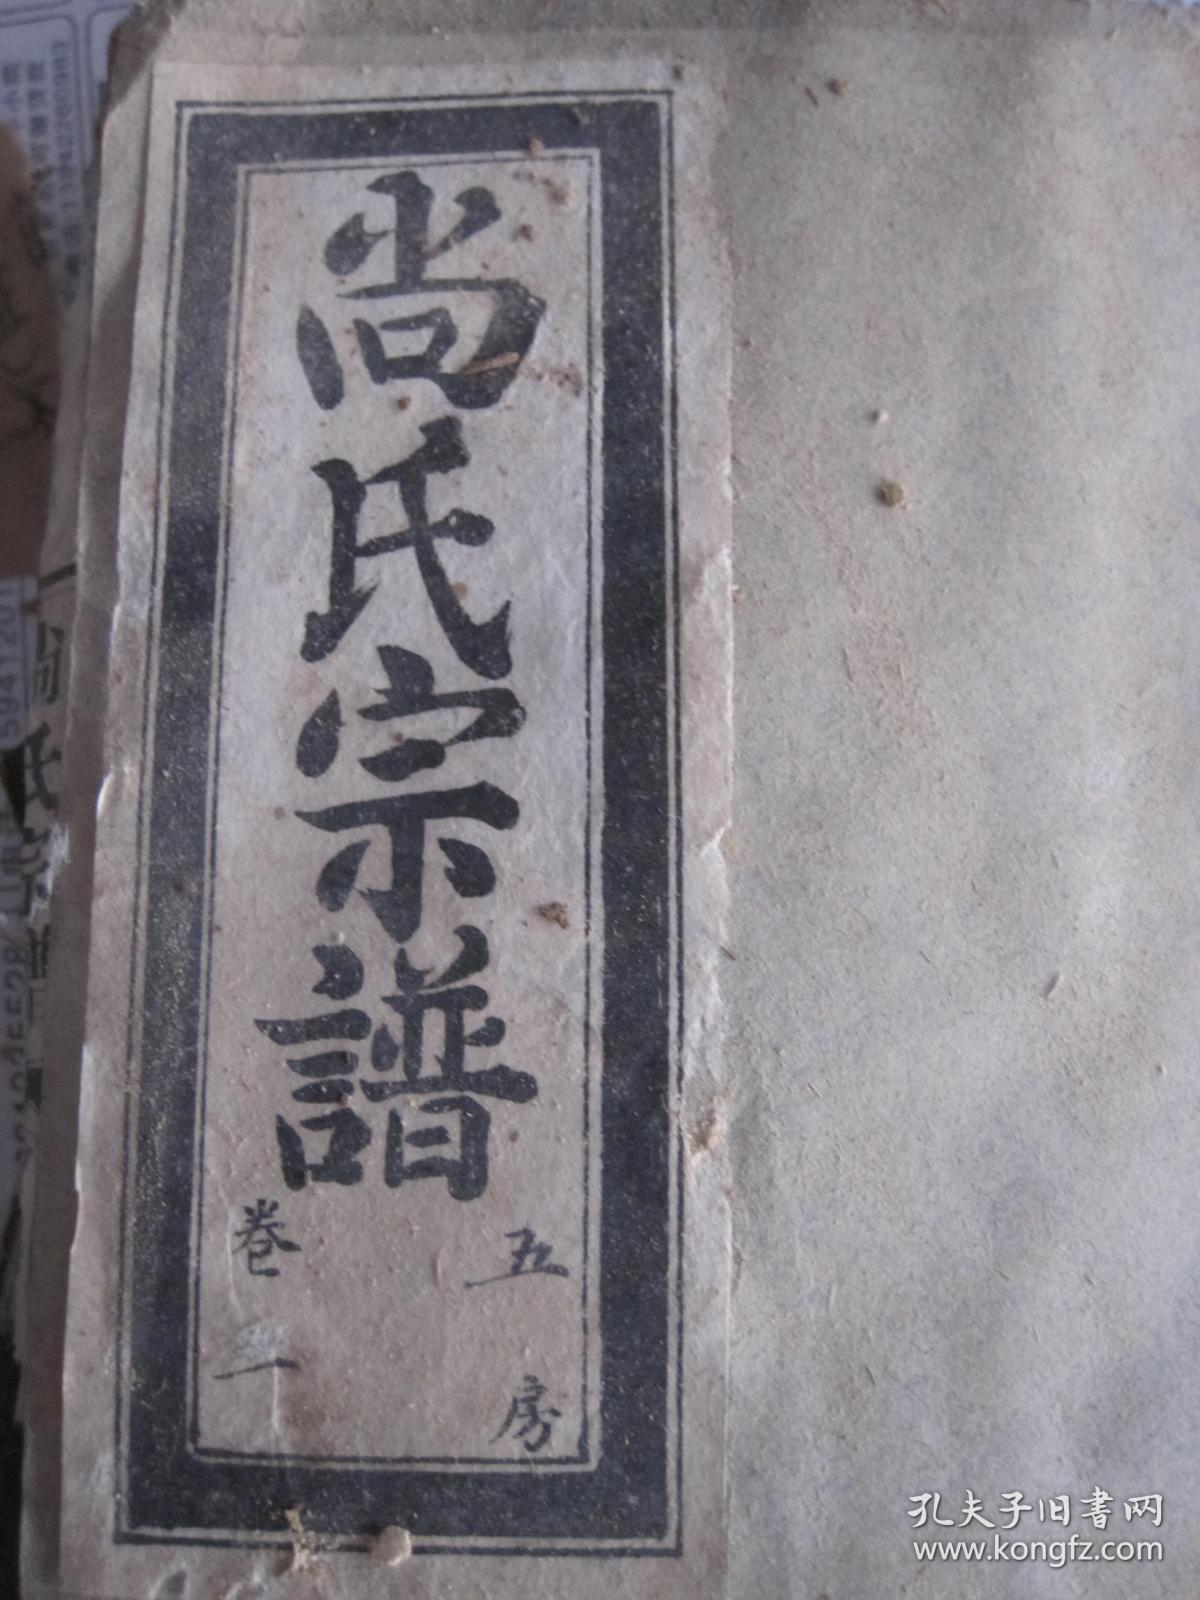 尚氏宗譜
五房
卷
孔夫子旧書网
www.kongfz.com